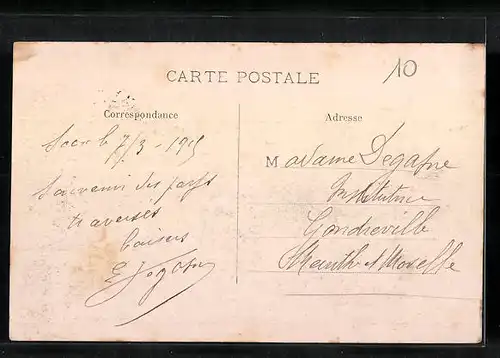 CARTE POSTALE
10
Correspondance
Adresse
le 7/3 - 1915
Souvenir des pays
traversés
baisers
Madame Degasne
Institutrice
Gondreville
Meurthe et Moselle